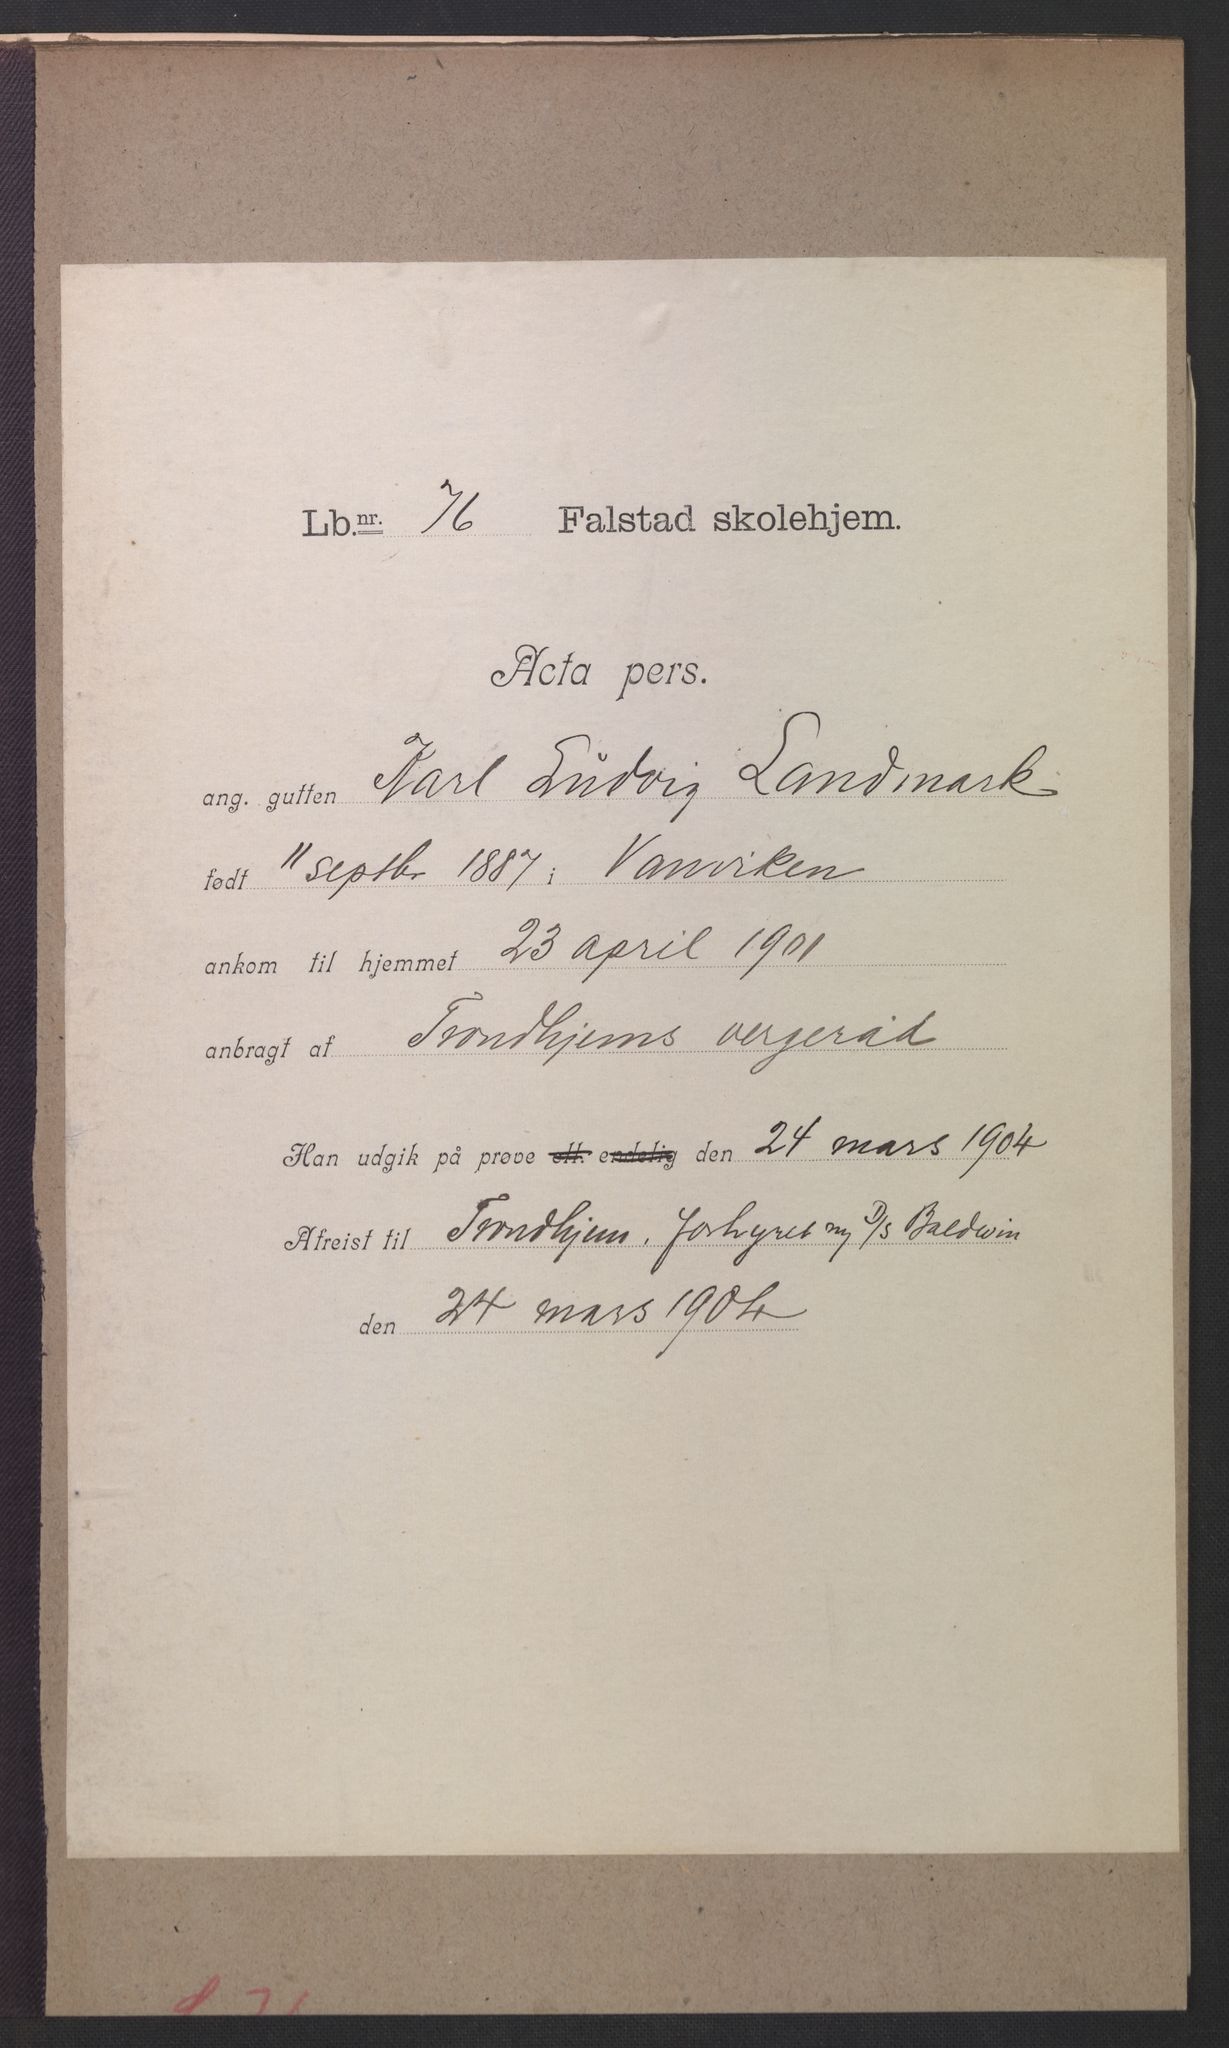 Lb.nr. 76 Falstad skolehjem.
Acta pers.
ang. gutten Karl Ludvig Landmark
født 11 septbr 1887 i Vanviken
ankom til hjemmet 23 april 1901
anbragt af Trondhjems vergeråd
Han udgik på prøve ell. endelig den 24 mars 1904
Afreist til Trondhjem, forhyret m/ D/S Baldwin
den 24 mars 1904